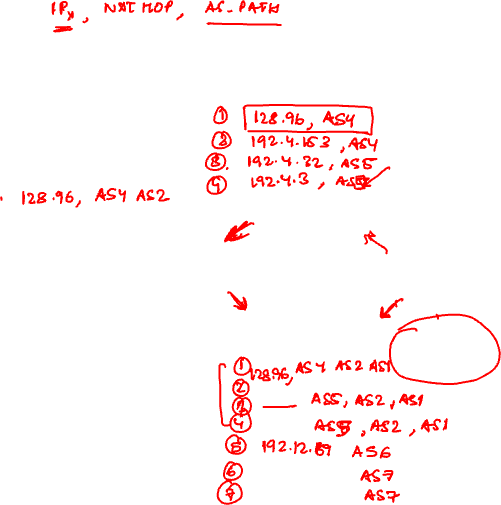 IPx, NXT HOP, AS_PATH
① 128.96, AS4
② 192.4.153, AS4
③. 192.4.32, AS5
④ 192.4.3, AS5
128.96, AS4 AS2
① 128.96, AS4 AS2 AS1
②
③ — AS5, AS2, AS1
④ AS5, AS2, AS1
⑤ 192.12.69 AS6
⑥ AS7
⑦ AS7